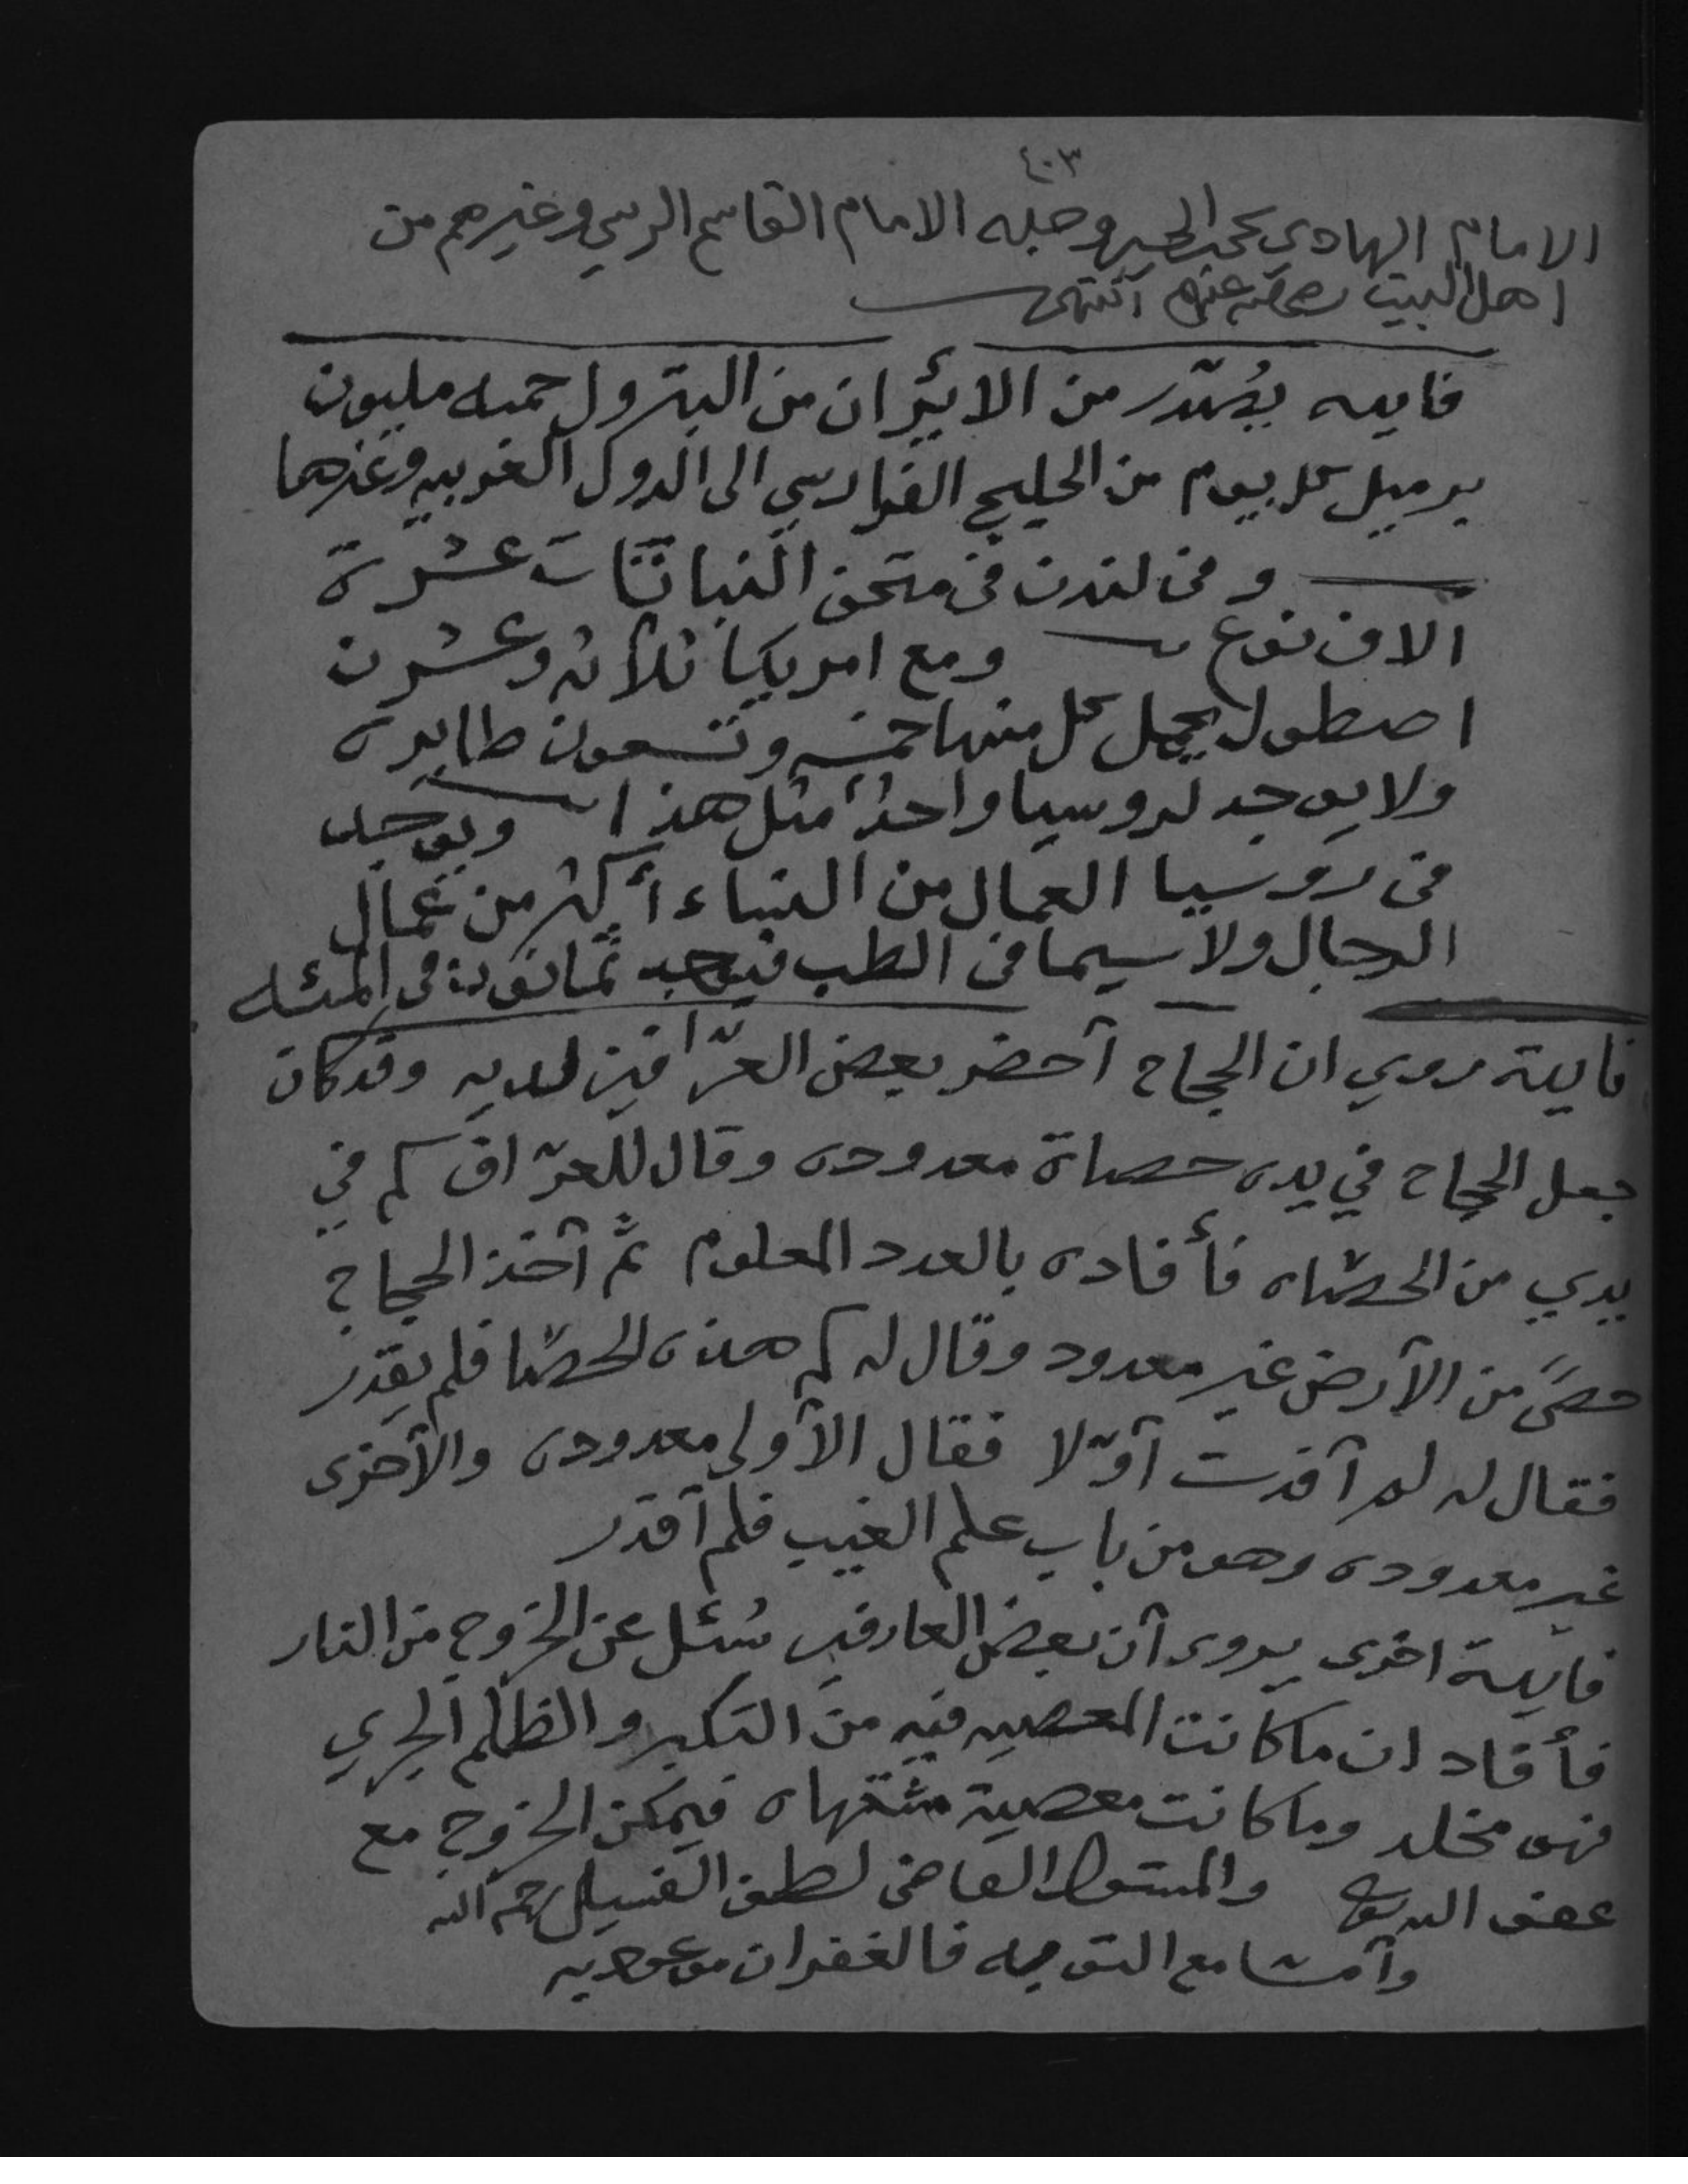 ٤٠٣
الامام الهادي يحيى بن الحسين وجده الامام القاسم الرسي وغيرهم من
اهل البيت رضي الله عنهم انتهى
فايده يُصّدر من الايران من البترول خمسه مليون
برميل كل يوم من الخليج الفارسي الى الدول الغربيه وغيرها
وفى لندن فى متحف النباتات عشرة
الاف نوع ومع امريكا ثلاثه وعشرن
اصطول يحمل كل منها خمسه وتسعون طايره
ولا يوجد لروسيا واحدٌ مثل هذا ويوجد
فى روسيا العمال من النساء أكثر من عمال
الرجال ولا سيما فى الطب فيوجد ثمانون فى المئه
فايدة روي ان الحجاج آحضر بعض العرّافين لديه وقد كان
جعل الحجاج في يده حصاة معدوده وقال للعرّاف كم في
يدي من الحصاه فأفاده بالعدد المعلوم ثم آخذ الحجاج
حصىً من الآرض غير معدود وقال له كم هذه الحصا فلم يقدر
فقال له لم آفدت آوّلا فقال الآولى معدوده والآخرى
غير معدوده وهو من باب علم الغيب فلم آقدر
فايدة اخرى يروى آن بعض العارفين سُئل عن الخروج من النار
فأفاد ان ما كانت المعصيه فيه من التكبر والظلم الجري
فهو مخلد وما كانت معصية مشتهاه فيمكن الخروج مع
عفو الله تعالى والمسئول القاضى لطف الفسيل رحمه الله
وآمـا مع التوبه فالغفران موعود به